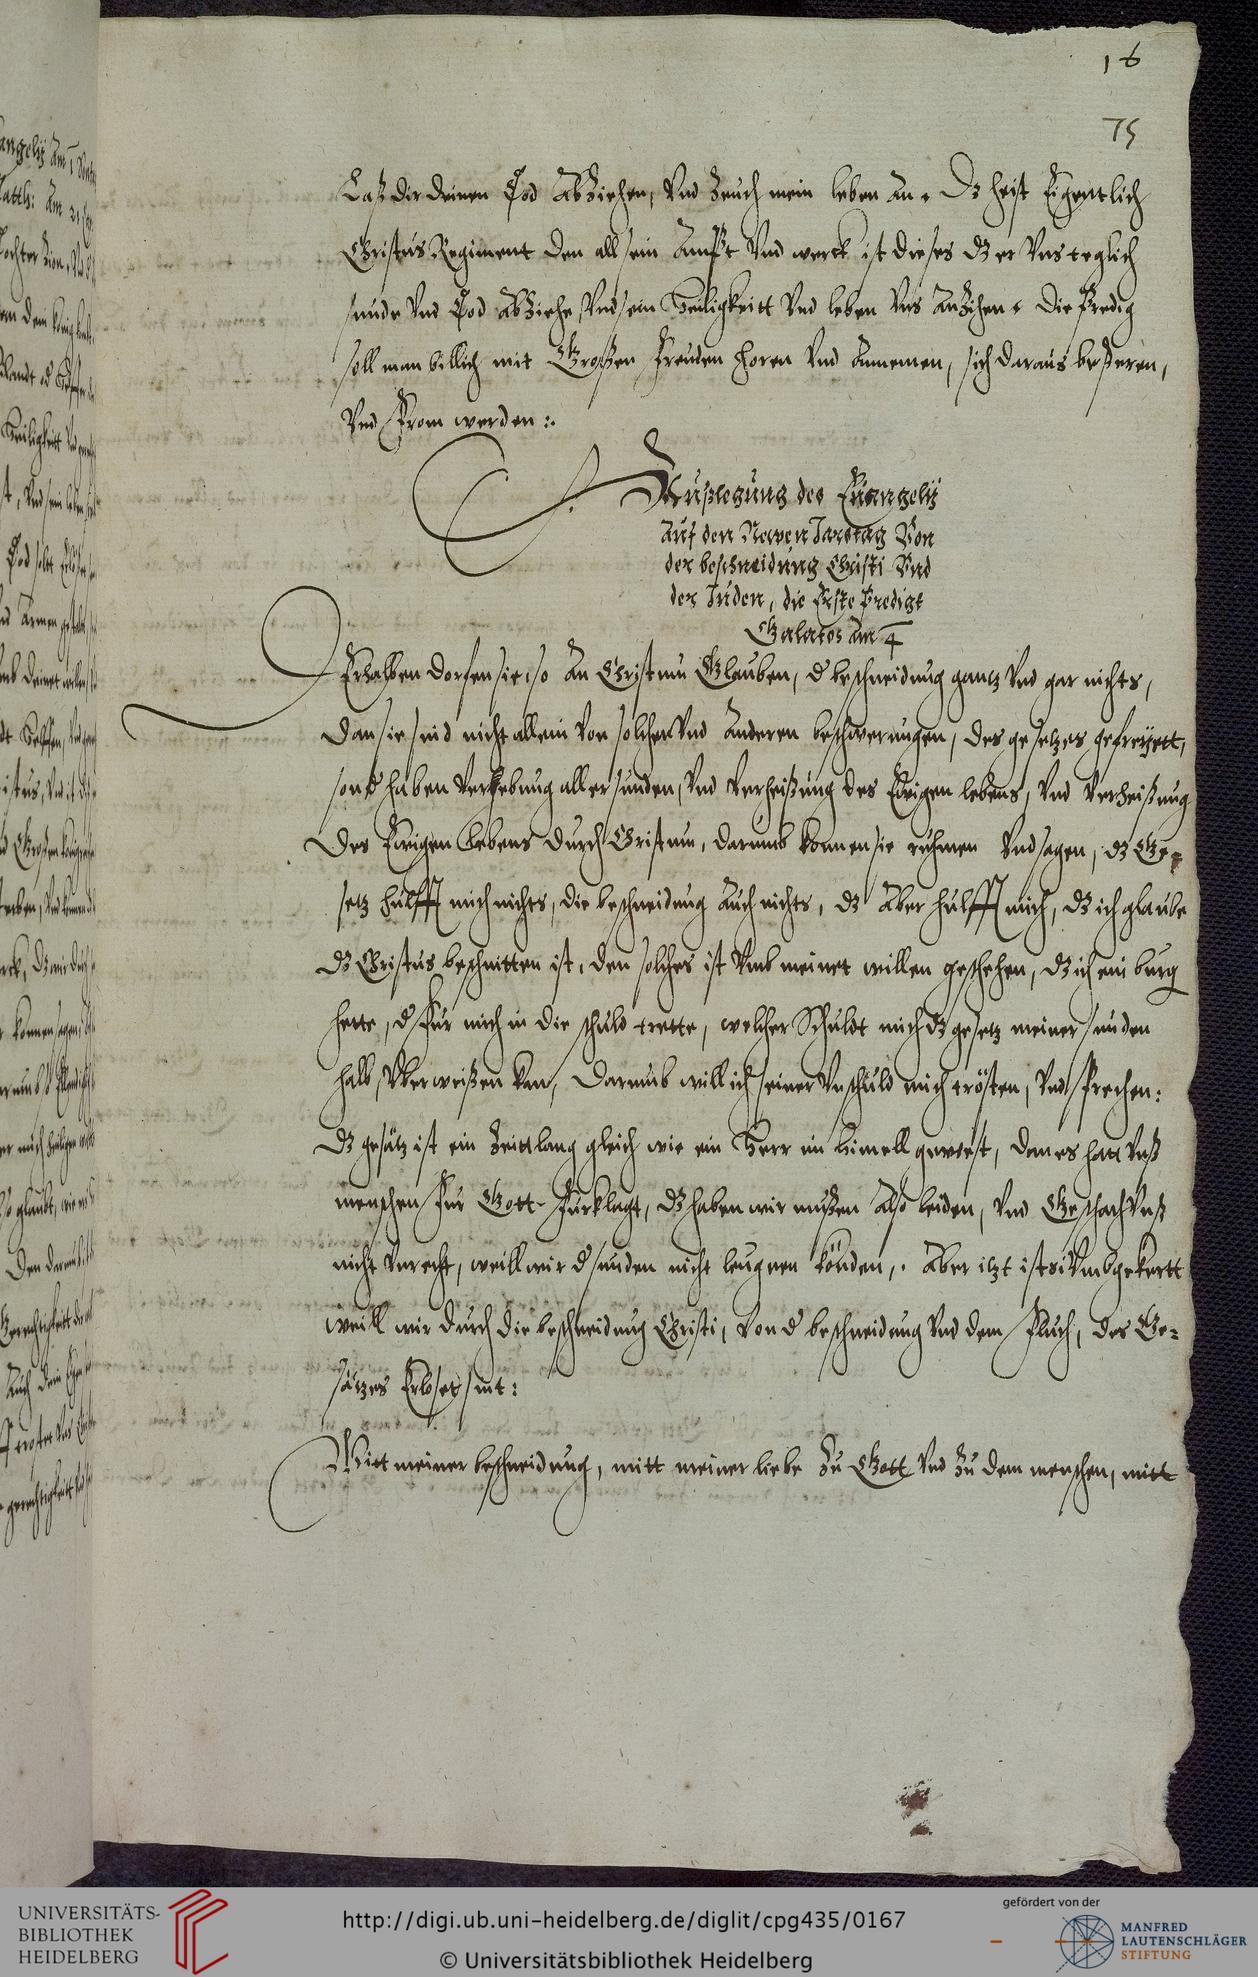 16
75
Laß dir deinen Tod Abziehen, Vnd Zeuch mein leben An. Dz heist Eigentlich
Christus Regiment den all sein Ampt Vnd werck ist dieses dz er Vns teglich
sunde Vnd Tod Abziehe, Vnd sein Heiligkeitt Vnd leben Vns Anzihen. Die Predig
soll man billich mit Großen freuden horen Vnd Annemen, sich daraus beßeren,
Vnd From werden:.
Außlegung des Euangelij
Auf den Newen Jarstag Von
der beschneidung Christi Vnd
der Juden, die Erste Predigt
Galatos Am 4
dorfen sie, so An Christum Glauben, d beschneidung gantz Vnd gar nichts,
dan sie sind nicht allein Von solchen Vnd Anderen beschwerungen, des gesetzes gefreyett,
sond haben Vergebung aller sunden, Vnd Verheißung des Ewigen lebens, Vnd Verheißung
des Ewigen lebens durch Christum, darumb konnen sie ruhmen Vnd sagen, dz Ge=
setz hulfft mich nichts, die beschneidung Auch nichts, dz Aber hulfft mich, dz ich glaube
dz Christus beschnitten ist, den solches ist Vmb meinet willen geschehen, dz ich ein burg
hette, d Fur mich in die schuld trette, welcher Schuldt mich dz gesetz meiner sunden
halb, Vberweißen kan, Darumb will ich seiner Vnschuld mich trösten, Vnd Sprechen:
dz gesätz ist ein Zeittlang gleich wie ein Herr im himell gewest, dan es hatt Vnß
menschen Fur Gott Furklagt, dz haben wir mußen Also leiden, Vnd Geschach Vnß
nicht Vnrecht, weill wir d sunden nicht leugnen könden,. Aber itzt ists Vmbgekertt
weill wir durch die beschneidung Christi, Von d beschneidung Vnd dem Fluch, des Ge=
sätzes Erloset sint:
Mitt meiner beschneidung, mitt meiner liebe Zu Gott Vnd Zu dem menschen, mitt
UNIVERSITÄTS-
BIBLIOTHEK
HEIDELBERG
http://digi.ub.uni-heidelberg.de/diglit/cpg435/0167
© Universitätsbibliothek Heidelberg
gefördert von der
MANFRED
LAUTENSCHLÄGER
STIFTUNG